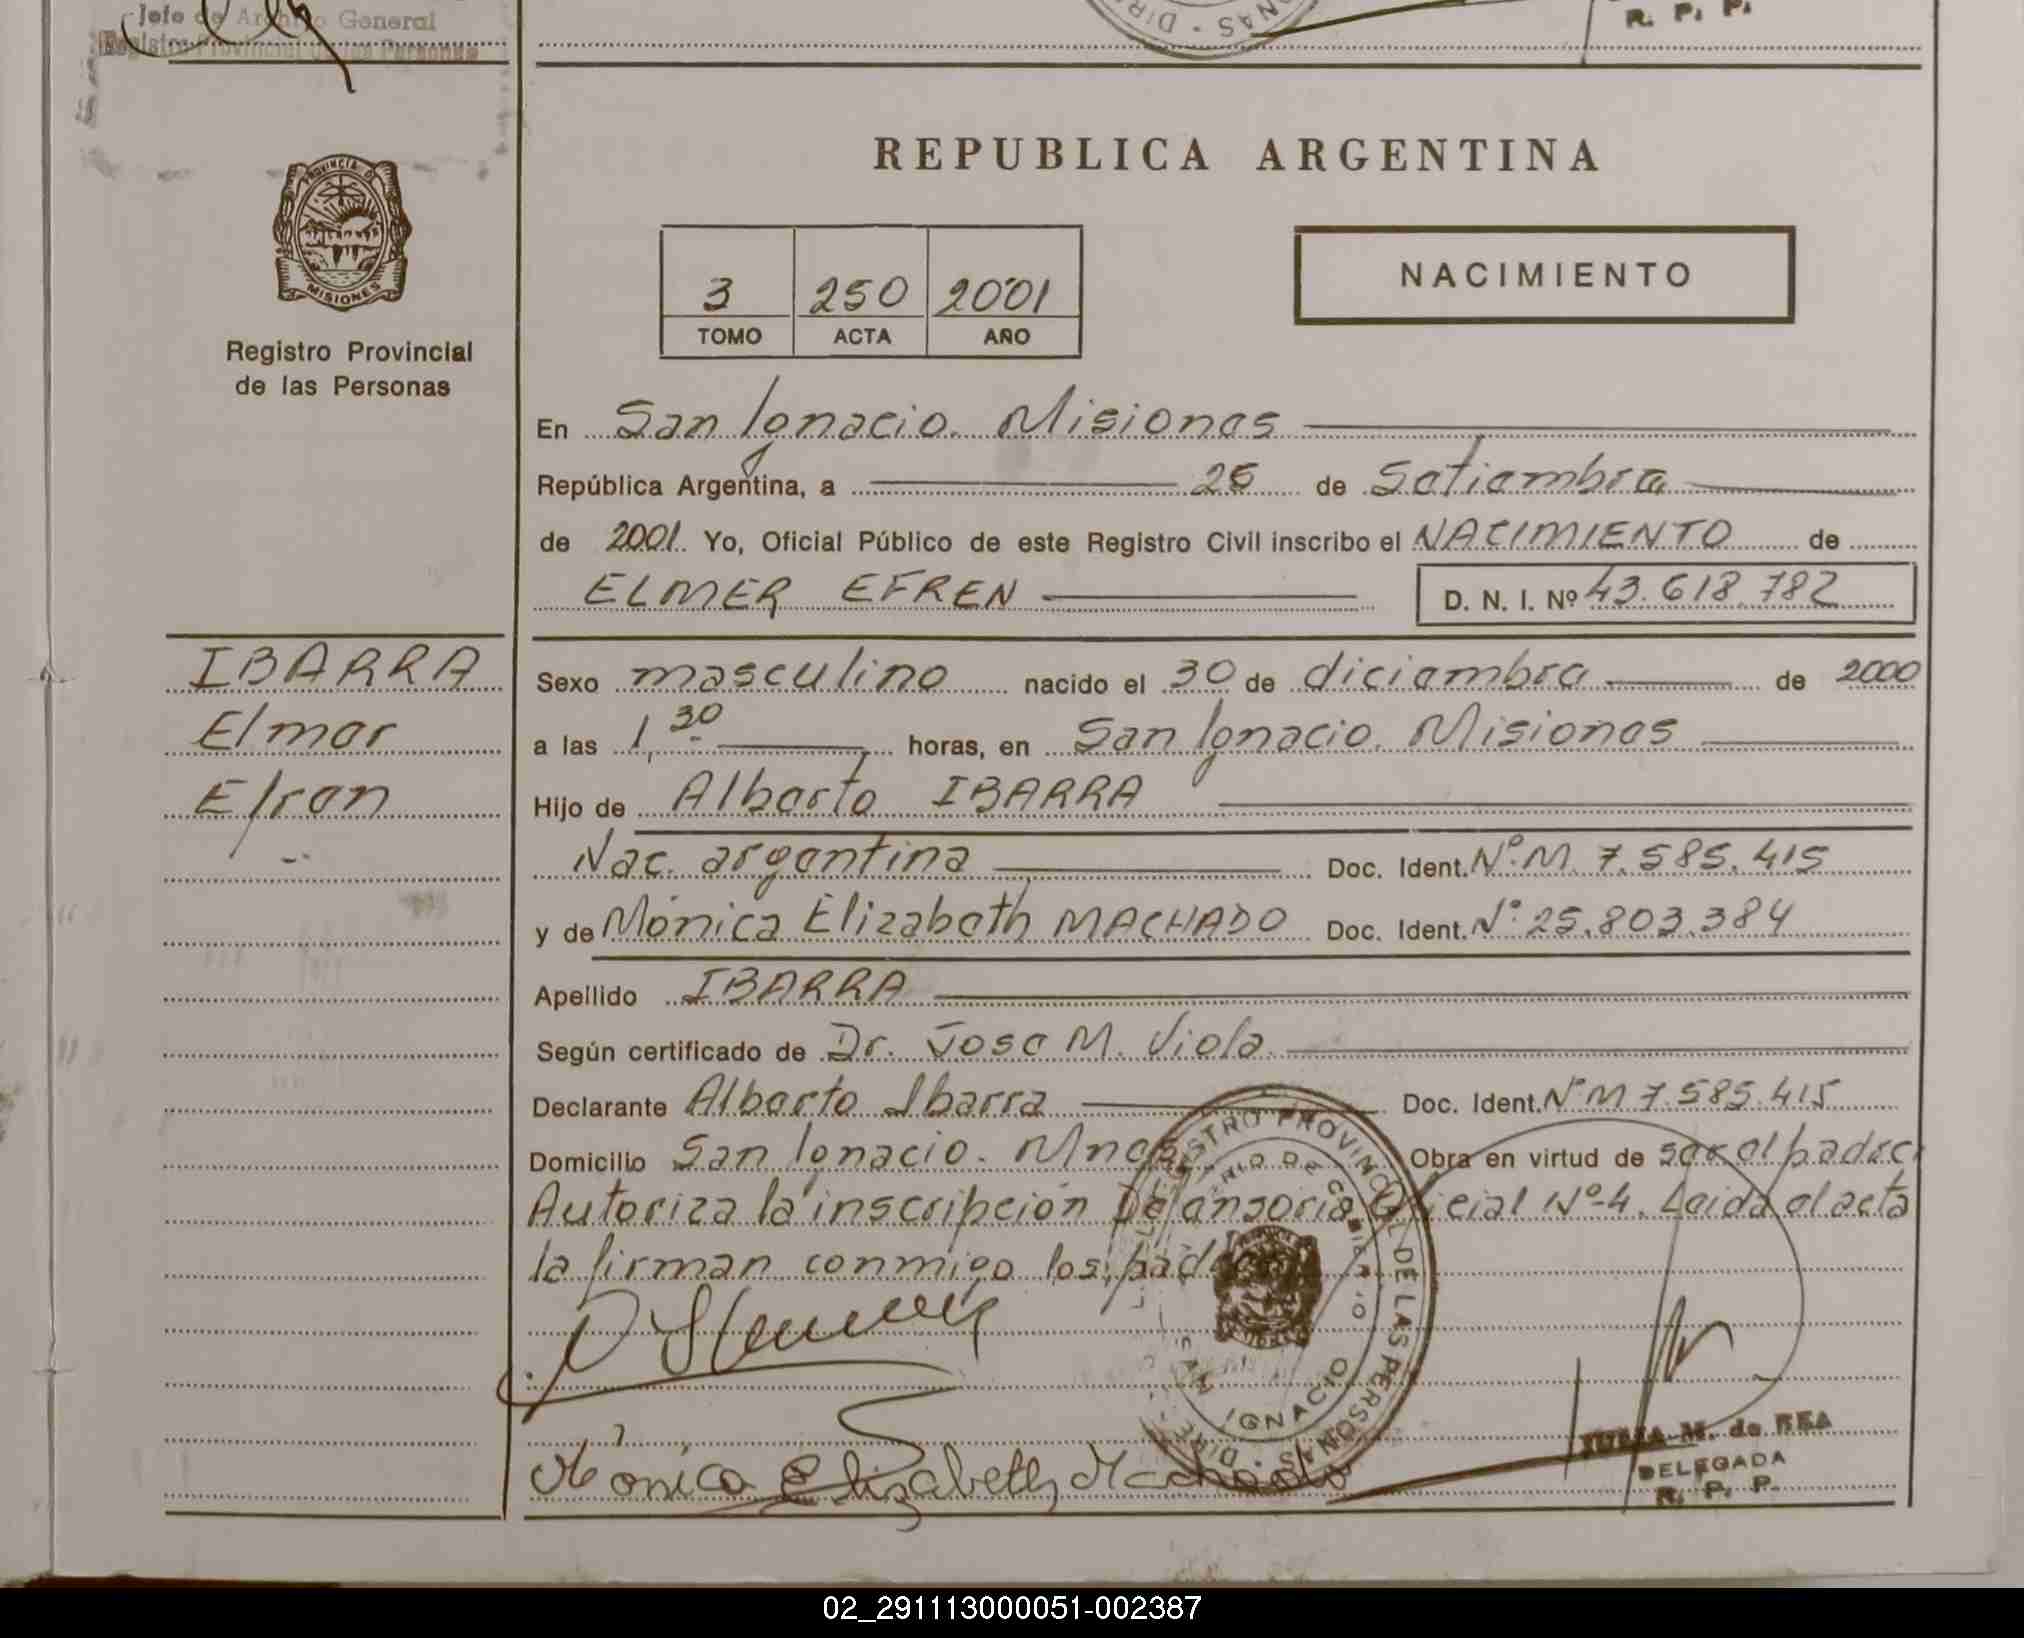 Jefe de Archivo General
Registro Provincial de las Personas
R. P. P.
PROVINCIA DE
MISIONES
Registro Provincial
de las Personas
REPUBLICA ARGENTINA
3 250 2001
TOMO ACTA AÑO
NACIMIENTO
En San Ignacio. Misiones
República Argentina, a 26 de Setiembre
de 2001. Yo, Oficial Público de este Registro Civil inscribo el NACIMIENTO de
ELMER EFREN D. N. I. Nº 43.618.782
IBARRA
Elmer
Efren
Sexo masculino nacido el 30 de diciembre de 2000
a las 1,30 horas, en San Ignacio. Misiones
Hijo de Alberto IBARRA
Nac. argentina Doc. Ident. Nº M. 7.585.415
y de Mónica Elizabeth MACHADO Doc. Ident. Nº 25.803.384
Apellido IBARRA
Según certificado de Dr. Jose M. Viola.
Declarante Alberto Ibarra Doc. Ident. Nº M 7.585.415
Domicilio San Ignacio. Mnes Obra en virtud de ser el padre.
Autoriza la inscripción Defensoria Oficial Nº 4. Leida el acta
la firman conmigo los padres
REGISTRO PROVINCIAL DE LAS PERSONAS
SAN IGNACIO
Mónica Elizabeth Machado
M. de REA
DELEGADA
R. P. P.
02_291113000051-002387